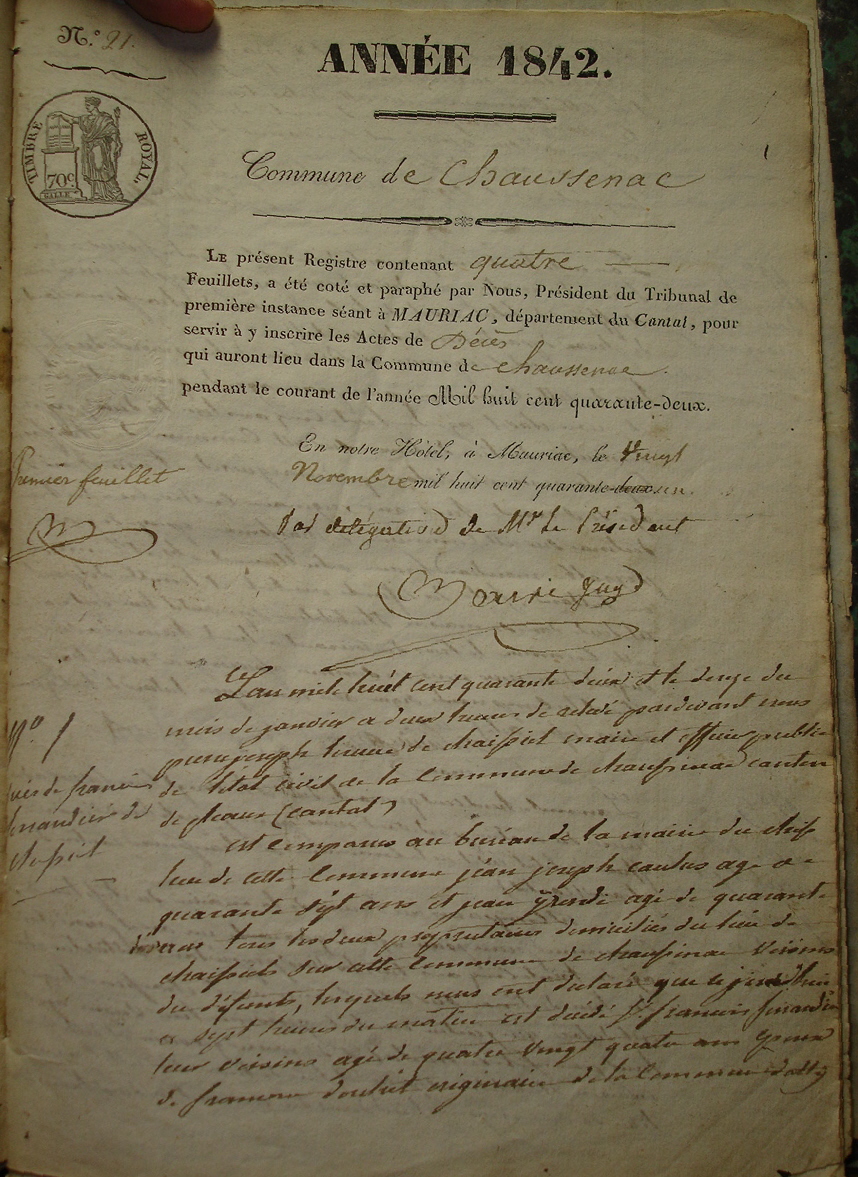 N.° 21.
ANNÉE 1842.
TIMBRE ROYAL
70c.
Commune de Chaussenac
LE présent Registre contenant quatre
Feuillets, a été coté et paraphé par Nous, Président du Tribunal de
première instance séant à MAURIAC, département du Cantal, pour
servir à y inscrire les Actes de Décès
qui auront lieu dans la Commune de chaussenac.
pendant le courant de l'année Mil huit cent quarante-deux.
En notre Hôtel, à Mauriac, le vingt
Novembre mil huit cent quarante-deux un.
Premier feuillet
Par délégation de Mr le Président
juge
L'an mile huit cent quarante deux et le douze du
mois de janvier a deux heures de relevé pardevant nous
joseph de maire et officier public
de l'état civil de la Commune de chaussenac canton
de pleaux (cantal)
N° 1
est comparus au bureau de la mairie du chef
lieu de cette Commune jean joseph caulus age de
quarante sept ans et jean age de quarante
tous les deux propriétaires domiciliés du lieu de
sur cette Commune de chaussenac voisins
du défunts, lesquels nous ont déclaré que ce jourd'hui
a sept heures du matin est décédé Sr francois
leur voisins agé de quatre vingt quatre ans epoux
de originaire de la Commune d'ally